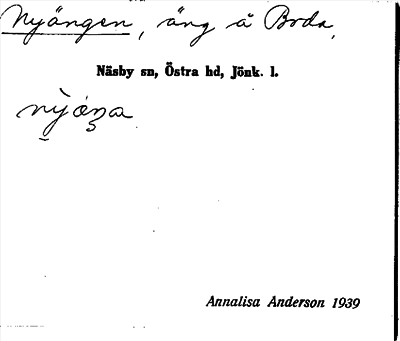 Nyängen, äng å Boda,
Näsby sn, Östra hd, Jönk. l.
Annalisa Anderson 1939